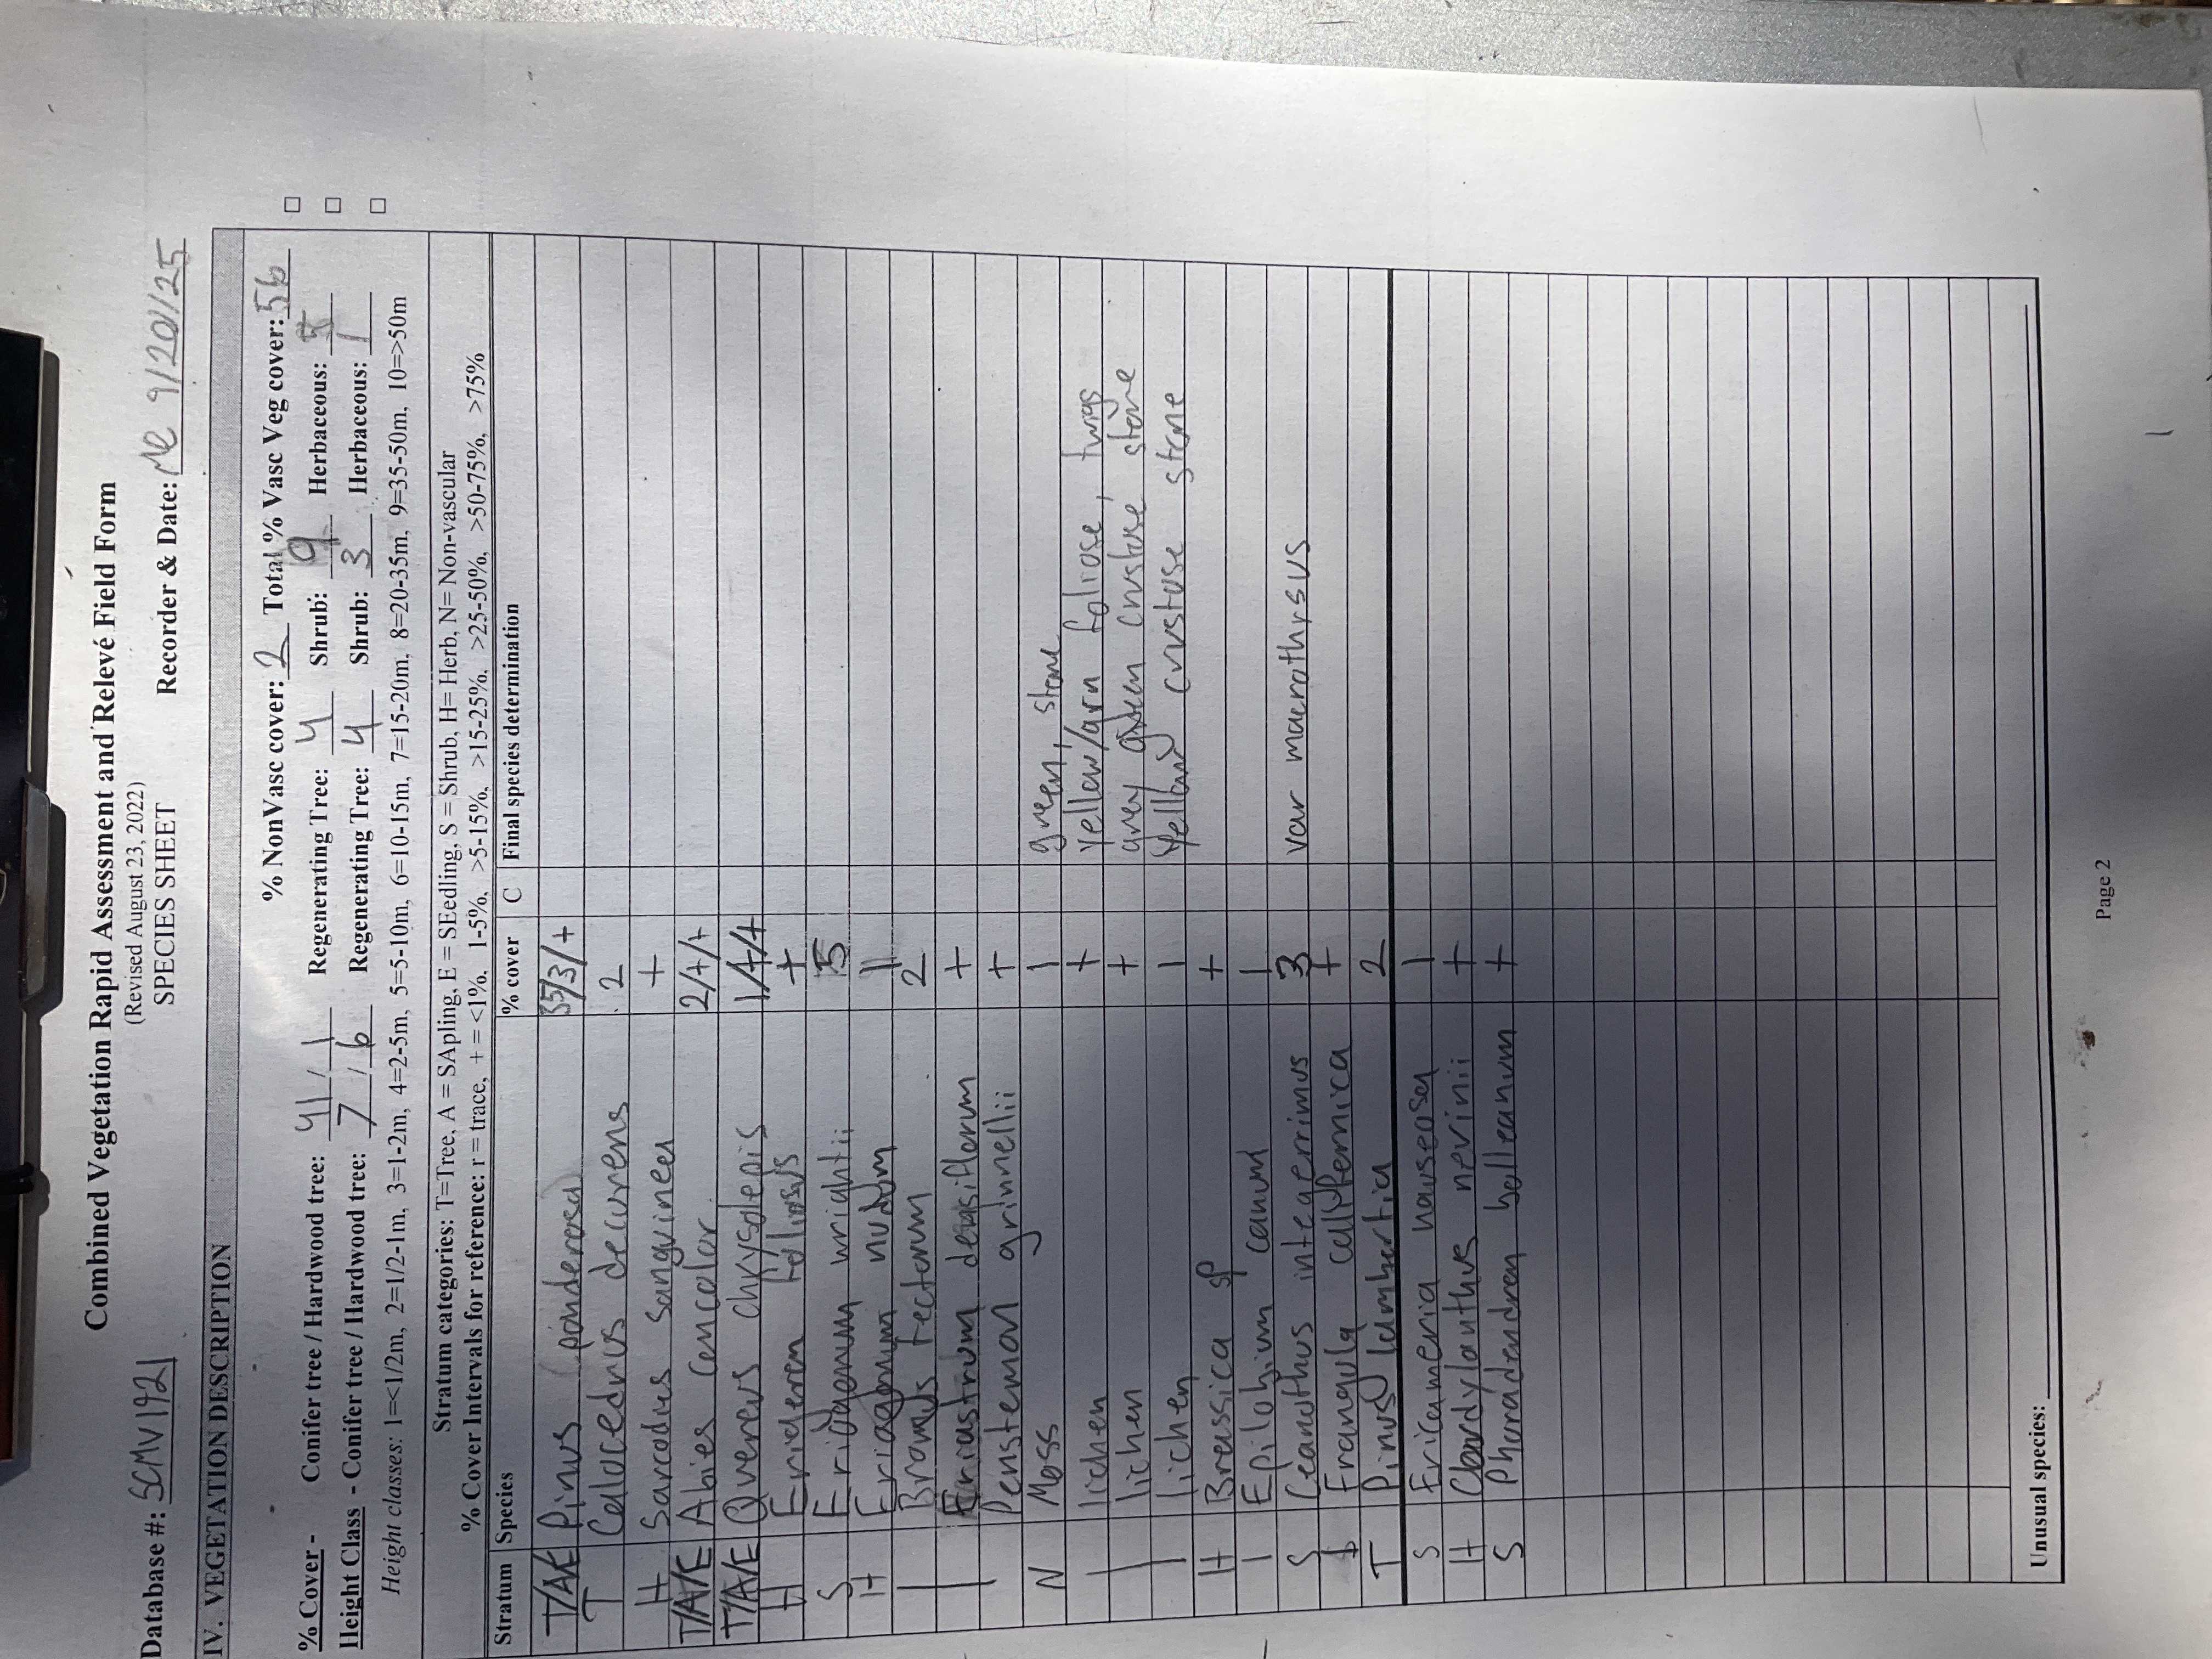 Combined Vegetation Rapid Assessment and Relevé Field Form
(Revised August 23, 2022)
SPECIES SHEET
Database #: SCMV1921 Recorder & Date: 9/20/25
IV. VEGETATION DESCRIPTION
% NonVasc cover: 2 Total % Vasc Veg cover: 56
% Cover - Conifer tree / Hardwood tree: 41 / 1 Regenerating Tree: 4 Shrub: 9 Herbaceous: 5
Height Class - Conifer tree / Hardwood tree: 7 / 6 Regenerating Tree: 4 Shrub: 3 Herbaceous: 1
Height classes: 1=<1/2m, 2=1/2-1m, 3=1-2m, 4=2-5m, 5=5-10m, 6=10-15m, 7=15-20m, 8=20-35m, 9=35-50m, 10=>50m
Stratum categories: T=Tree, A = SApling, E = SEedling, S = Shrub, H= Herb, N= Non-vascular
% Cover Intervals for reference: r = trace, + = <1%, 1-5%, >5-15%, >15-25%, >25-50%, >50-75%, >75%
Stratum Species % cover C Final species determination
T/A/E Pinus ponderosa 35/3/+
T Calocedrus decurrens 2
H Sarcodes sanguinea +
T/A/E Abies concolor 2/+/+
T/A/E Quercus chrysolepis 1/+/+
H Erigeron foliosus +
S Eriogonum wrightii 5
H Eriogonum nudum 1
| Bromus tectorum 2
| Eriastrum densiflorum +
| Penstemon grinnellii +
N Moss 1 green, stone
| lichen + yellow/grn foliose, twigs
| lichen + grey green crustose, stone
| lichen 1 yellow crustose stone
H Brassica sp +
| Epilobium canum 1
S Ceanothus integerrimus 3 var macrothrsus
Frangula californica +
T Pinus lambertia 2
S Ericameria nauseosa 1
H Cordylanthus nevinii +
S Phoradendron bolleanum +
Unusual species:
Page 2